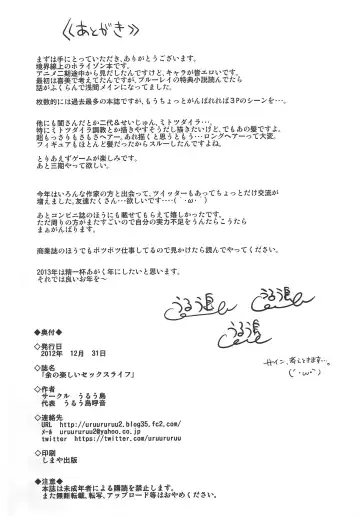 ≪あとがき≫
まずは手にとっていただき、ありがとうございます。
境界線上のホライゾン本です。
アニメ二期途中から見だしたんですけど、キャラが皆エロいです。
最初は喜美で考えてたんですが、ブルーレイの特典小説読んでたら
話がふくらんで浅間メインになってました。
枚数的には過去最多の本誌ですが、もうちょっとがんばれれば3Pのシーンを…。
他にも闇さんだとか二代&せいじゅん、ミトツダイラ…。
特にミトツダイラ調教とか描きやすそうだし描きたいけど、でもあの髪ですよ。
超もっさりもさもさヘアー。あれ描くと思うともう…ロングヘアーって大変。
フィギュアもほとんど髪だったからスルーしたんですよね。
とりあえずゲームが楽しみです。
あと三期やって欲しい。
今年はいろんな作家の方と出会って、ツイッターもあってちょっとだけ交流が
増えました。友達たくさん…欲しいです……(´・ω・｀)
あとコンビニ誌のほうにも載せてもらえて嬉しかったです。
ただ周りの方がすごいもので自分の実力不足をうんたらこうたら
まぁがんばります。
商業誌のほうでもボツボツ仕事してるので見かけたら読んでやってください。
2013年は精一杯あがく年にしたいと思います。
それでは良いお年を～
うるう島
うるう島
うるう島
サイン、考えときます…。
(´・ω・｀)
◆奥付◆
◇発行日
2012年 12月 31日
◇誌名
『余の楽しいセックスライフ』
◇作者
サークル うるう島
代表 うるう島呼音
◇連絡先
URL http://uruururuu2.blog35.fc2.com/
メール uruururuu2@yahoo.co.jp
twitter https://twitter.com/uruururuu
◇印刷
しまや出版
◆注意◆
本誌は未成年者による購読を禁止します。
また無断転載、転写、アップロード等はおやめください。